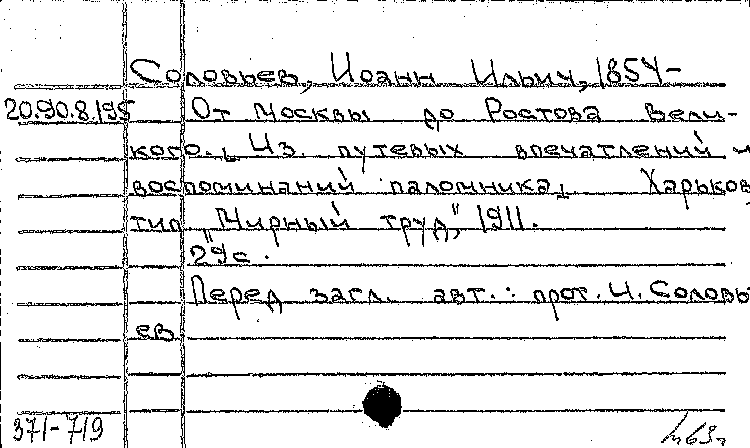 Соловьев, Иоанн Ильич, 1854-
20.90.8.195 От Москвы до Ростова Вели-
кого. Из путевых впечатлений и
воспоминаний паломника. Харьков
тип. "Мирный труд", 1911.
29с.
Перед загл. авт.: прот. И. Соловь
ев
371-719